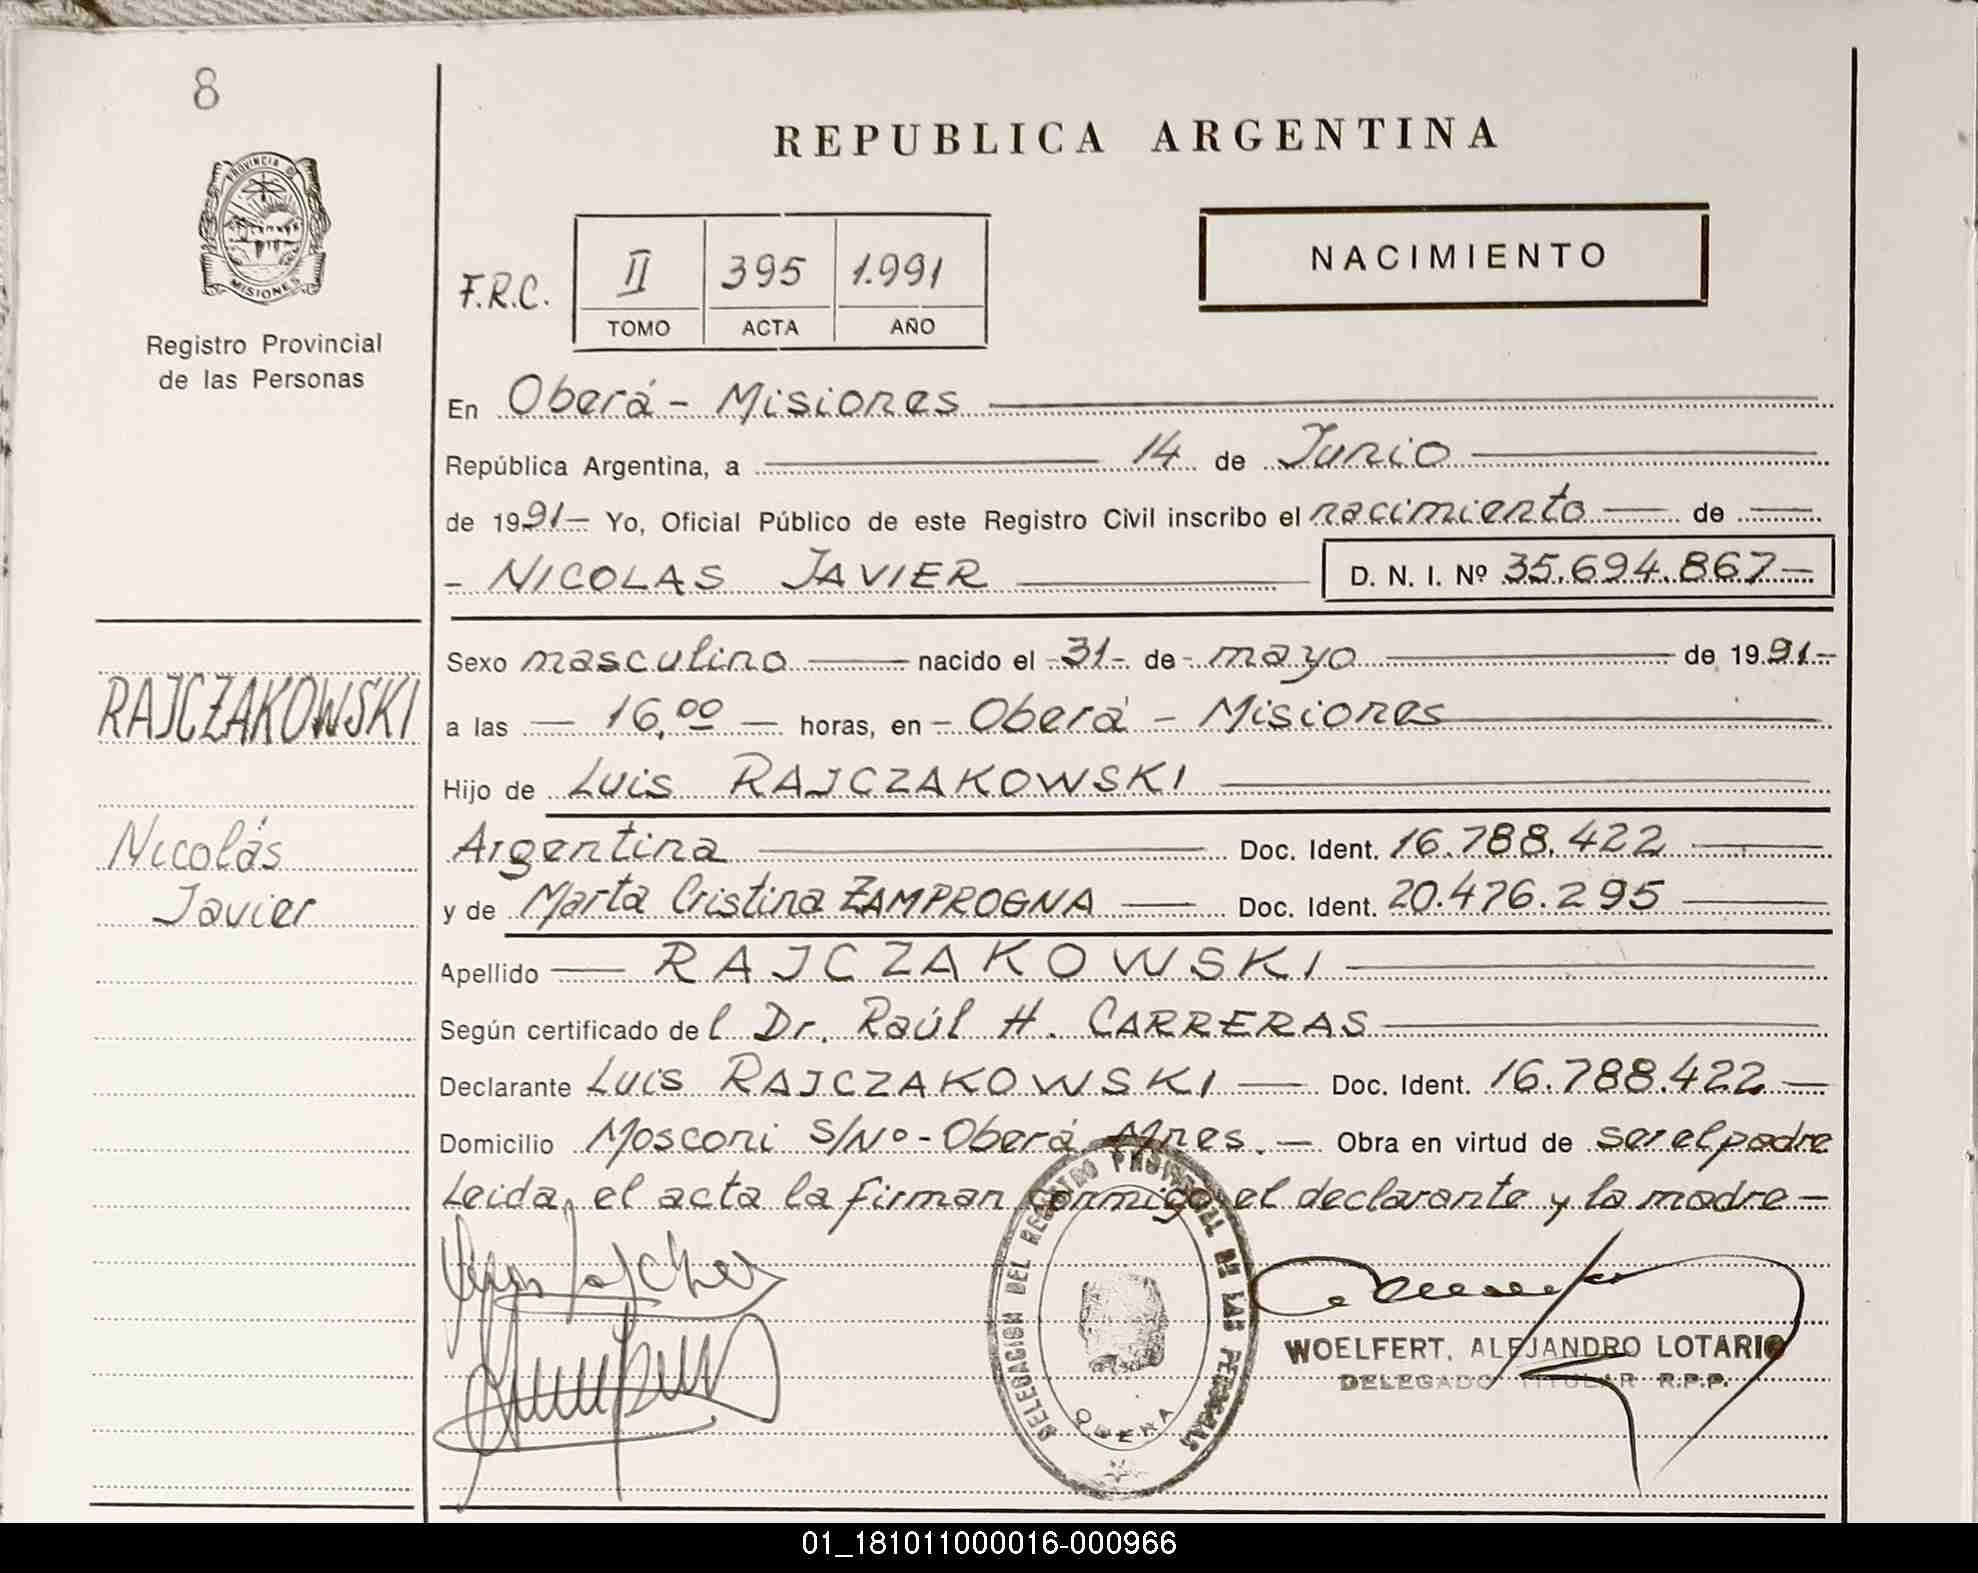 8
PROVINCIA DE
MISIONES
Registro Provincial
de las Personas
RAJCZAKOWSKI
Nicolás
Javier
REPUBLICA ARGENTINA
NACIMIENTO
F.R.C. II 395 1.991
TOMO ACTA AÑO
En Oberá - Misiones
República Argentina, a 14 de Junio
de 1991- Yo, Oficial Público de este Registro Civil inscribo el nacimiento de
- NICOLAS JAVIER D. N. I. Nº 35.694.867-
Sexo masculino nacido el -31- de - mayo de 1991-
a las 16,00 horas, en - Oberá - Misiones
Hijo de Luis RAJCZAKOWSKI
Argentina Doc. Ident. 16.788.422
y de Marta Cristina ZAMPROGNA Doc. Ident. 20.476.295
Apellido RAJCZAKOWSKI
Según certificado del Dr. Raúl H. CARRERAS
Declarante Luis RAJCZAKOWSKI Doc. Ident. 16.788.422
Domicilio Mosconi S/Nº - Oberá Mnes. Obra en virtud de ser el padre
Leida, el acta la firman conmigo el declarante y la madre -
DELEGACION DEL REGISTRO PROVINCIAL DE LAS PERSONAS
OBERA
WOELFERT, ALEJANDRO LOTARIO
DELEGADO TITULAR R.P.P.
01_181011000016-000966